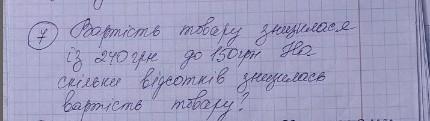 7 Вартість товару знизилася
із 240грн до 150грн На
скільки відсотків знизилась
вартість товару?